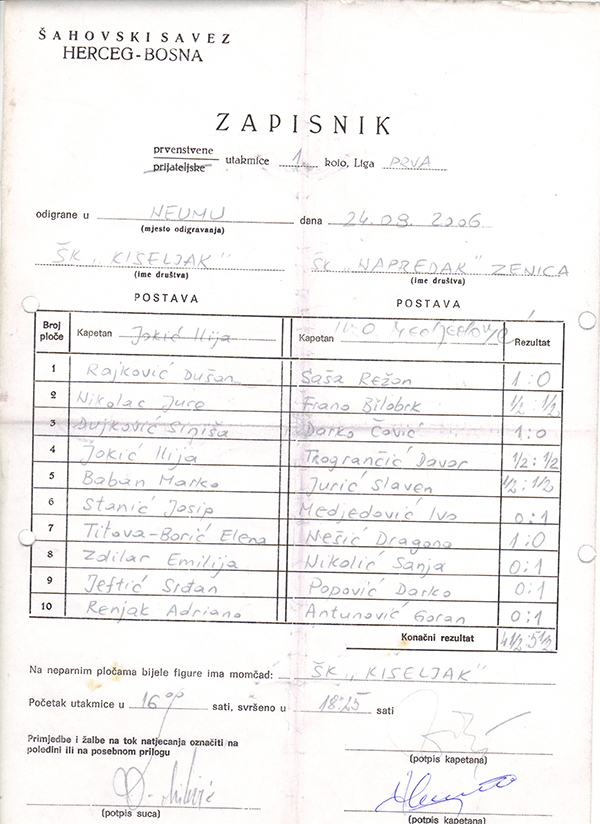 ŠAHOVSKI SAVEZ
HERCEG-BOSNA
ZAPISNIK
prvenstvene
prijateljske utakmice 1. kolo, Liga PRVA
odigrane u NEUMU dana 24.09.2006
(mjesto odigravanja)
ŠK „KISELJAK" ŠK „NAPREDAK" ZENICA
(ime društva) (ime društva)
POSTAVA POSTAVA
Broj ploče Kapetan Jokić Ilija Kapetan IVO Medjedović Rezultat
1 Rajković Dušan Saša Režan 1:0
2 Nikolac Jure Frano Bilobrk 1/2:1/2
3 Dujković Siniša Darko Čović 1:0
4 Jokić Ilija Trogrančić Davor 1/2:1/2
5 Baban Marko Jurić Slaven 1/2:1/2
6 Stanić Josip Medjedović Ivo 0:1
7 Titova-Borić Elena Nešić Dragana 1:0
8 Zdilar Emilija Nikolić Sanja 0:1
9 Jeftić Srđan Popović Darko 0:1
10 Renjak Adriano Antunović Goran 0:1
Konačni rezultat 4 1/2:5 1/2
Na neparnim pločama bijele figure ima momčad: ŠK „KISELJAK"
Početak utakmice u 16 00 sati, svršeno u 18:25 sati
Primjedbe i žalbe na tok natjecanja označiti na
poledini ili na posebnom prilogu
(potpis kapetana)
(potpis suca) (potpis kapetana)